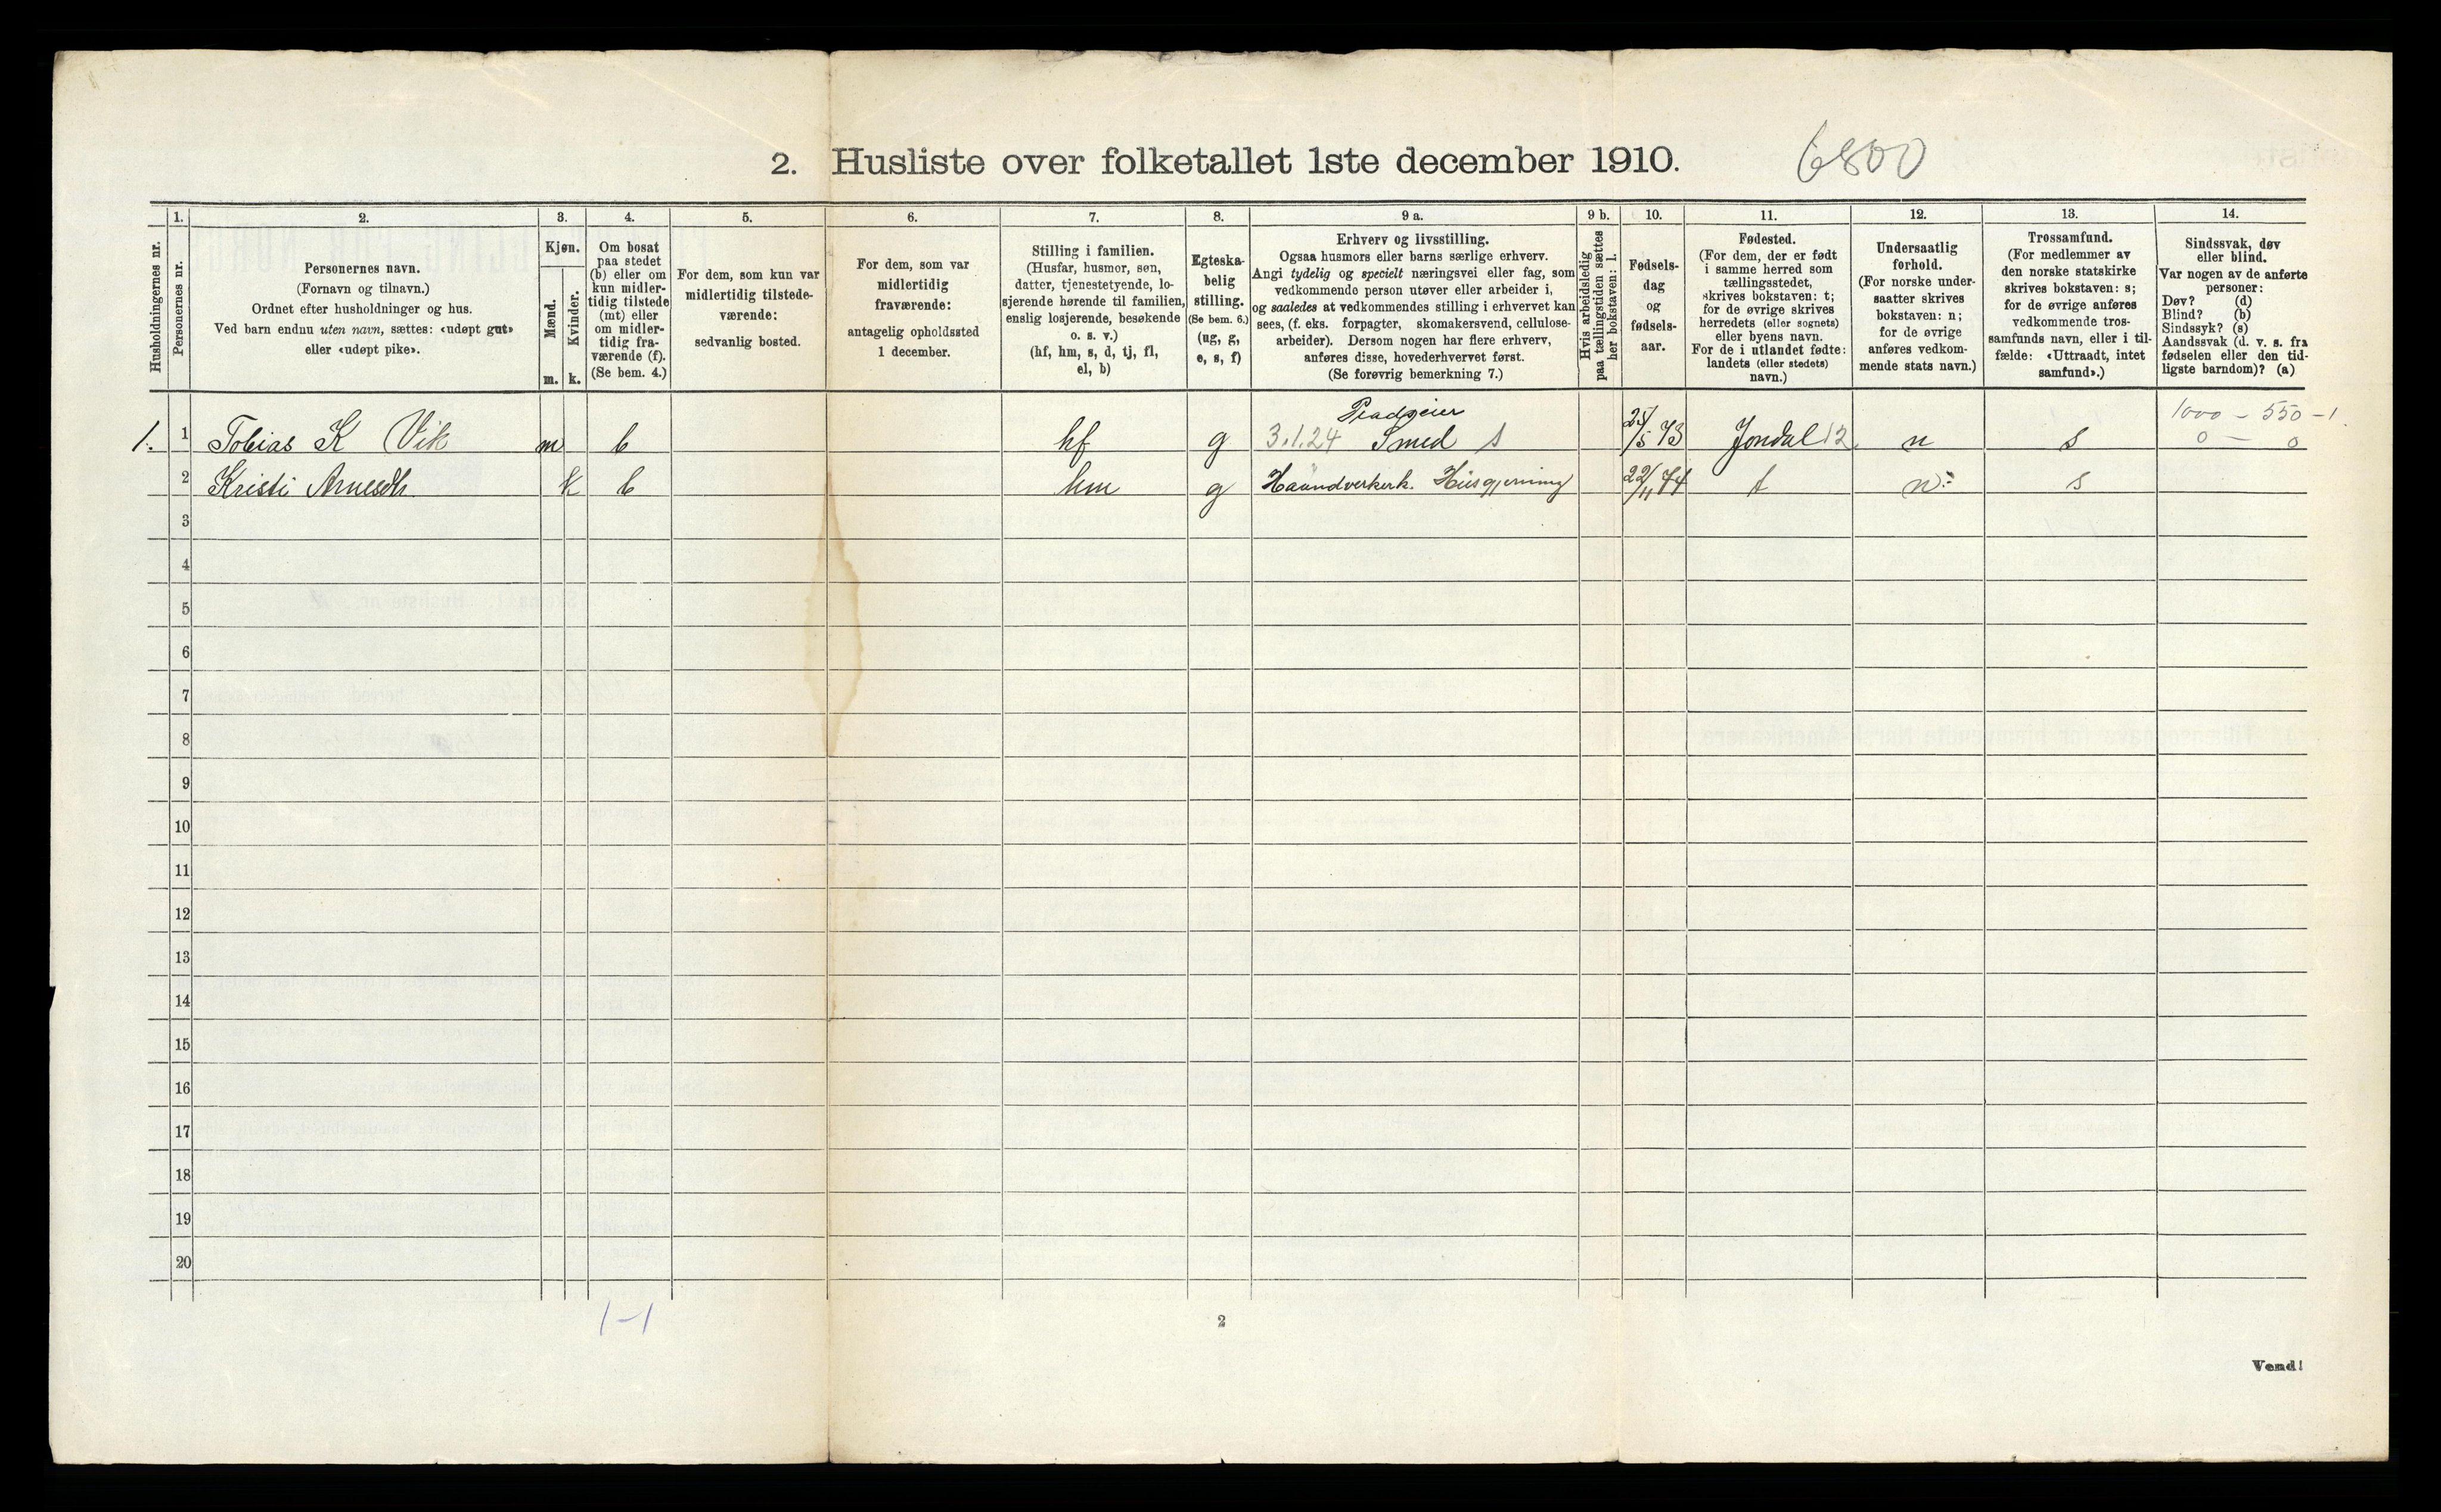 2. Husliste over folketallet 1ste december 1910.
6800
Husholdningernes nr.
1.
Personernes nr.
2.
Personernes navn.
(Fornavn og tilnavn.)
Ordnet efter husholdninger og hus.
Ved barn endnu uten navn, sættes: «udøpt gut»
eller «udøpt pike».
3.
Kjøn.
Mænd.
Kvinder.
m. k.
4.
Om bosat
paa stedet
(b) eller om
kun midler-
tidig tilstede
(mt) eller
om midler-
tidig fra-
værende (f).
(Se bem. 4.)
5.
For dem, som kun var
midlertidig tilstede-
værende:
sedvanlig bosted.
6.
For dem, som var
midlertidig
fraværende:
antagelig opholdssted
1 december.
7.
Stilling i familien.
(Husfar, husmor, søn,
datter, tjenestetyende, lo-
sjerende hørende til familien,
enslig losjerende, besøkende
o. s. v.)
(hf, hm, s, d, tj, fl,
el, b)
8.
Egteska-
belig
stilling.
(Se bem. 6.)
(ug, g,
e, s, f)
9 a.
Erhverv og livsstilling.
Ogsaa husmors eller barns særlige erhverv.
Angi tydelig og specielt næringsvei eller fag, som
vedkommende person utøver eller arbeider i,
og saaledes at vedkommendes stilling i erhvervet kan
sees, (f. eks. forpagter, skomakersvend, cellulose-
arbeider). Dersom nogen har flere erhverv,
anføres disse, hovederhvervet først.
(Se forøvrig bemerkning 7.)
9 b.
Hvis arbeidsledig
paa tællingstiden sættes
her bokstaven: l.
10.
Fødsels-
dag
og
fødsels-
aar.
11.
Fødested.
(For dem, der er født
i samme herred som
tællingsstedet,
skrives bokstaven: t;
for de øvrige skrives
herredets (eller sognets)
eller byens navn.
For de i utlandet fødte:
landets (eller stedets)
navn.)
12.
Undersaatlig
forhold.
(For norske under-
saatter skrives
bokstaven: n;
for de øvrige
anføres vedkom-
mende stats navn.)
13.
Trossamfund.
(For medlemmer av
den norske statskirke
skrives bokstaven: s;
for de øvrige anføres
vedkommende tros-
samfunds navn, eller i til-
fælde: «Uttraadt, intet
samfund».)
14.
Sindssvak, døv
eller blind.
Var nogen av de anførte
personer:
Døv? (d)
Blind? (b)
Sindssyk? (s)
Aandssvak (d. v. s. fra
fødselen eller den tid-
ligste barndom)? (a)
1000 - 550 - 1
1. 1 Tobias K Vik m b hf g 3.1.24 Smed s 25/5 73 Jondal 12 n s 0 - 0
2 Kristi Arnesdtr k b hm g Haandverkerk. Husgjerning 22/11 74 t n s
3
4
5
6
7
8
9
10
11
12
13
14
15
16
17
18
19
20
1-1
2
Vend!